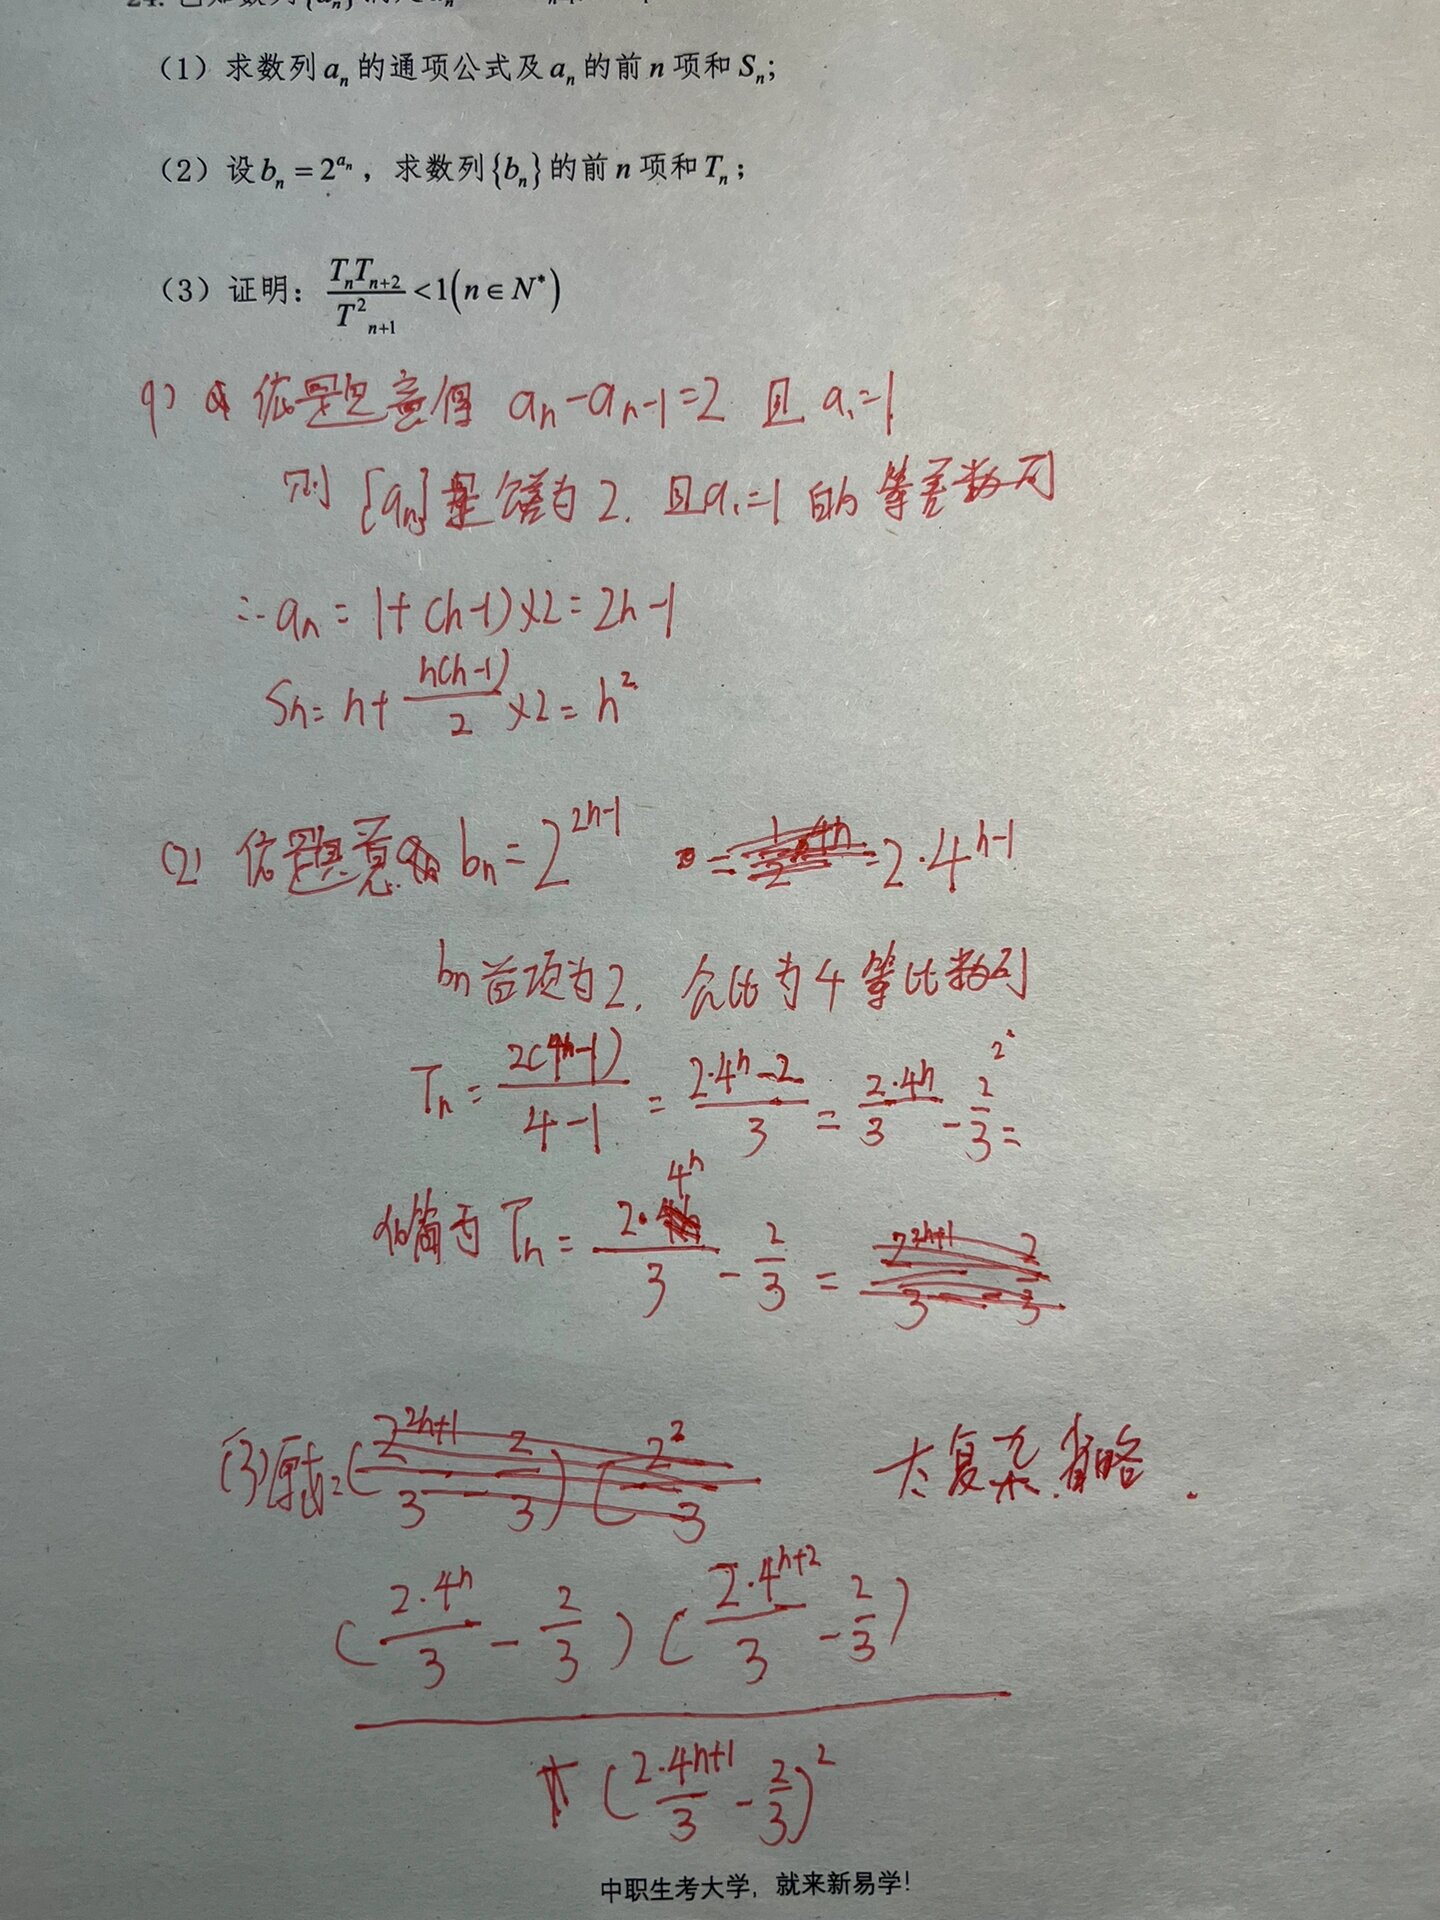 (1) 求数列 aₙ 的通项公式及 aₙ 的前 n 项和 Sₙ;
(2) 设 bₙ = 2^{aₙ} ，求数列 {bₙ} 的前 n 项和 Tₙ ;
(3) 证明: TₙTₙ₊₂ / T²ₙ₊₁ < 1 (n ∈ N*)
(1) 依题意得 an - an-1 = 2 且 a₁ = 1
则 {an} 是公差为 2. 且 a₁ = 1 的 等差数列
∴ an = 1 + (n-1) × 2 = 2n - 1
Sn = n + n(n-1)/2 × 2 = n²
(2) 依题意 bn = 2^{2n-1} = 2·4^{n-1}
bn 首项为 2, 公比为 4 等比数列
Tn = 2(4^n - 1)/(4 - 1) = (2·4^n - 2)/3 = 2·4^n/3 - 2/3 =
Tn = 2·4^n/3 - 2/3 =
(3) 原式 =
太复杂.省略.
(2·4^n/3 - 2/3)(2·4^{n+2}/3 - 2/3)
(2·4^{n+1}/3 - 2/3)²
中职生考大学，就来新易学!